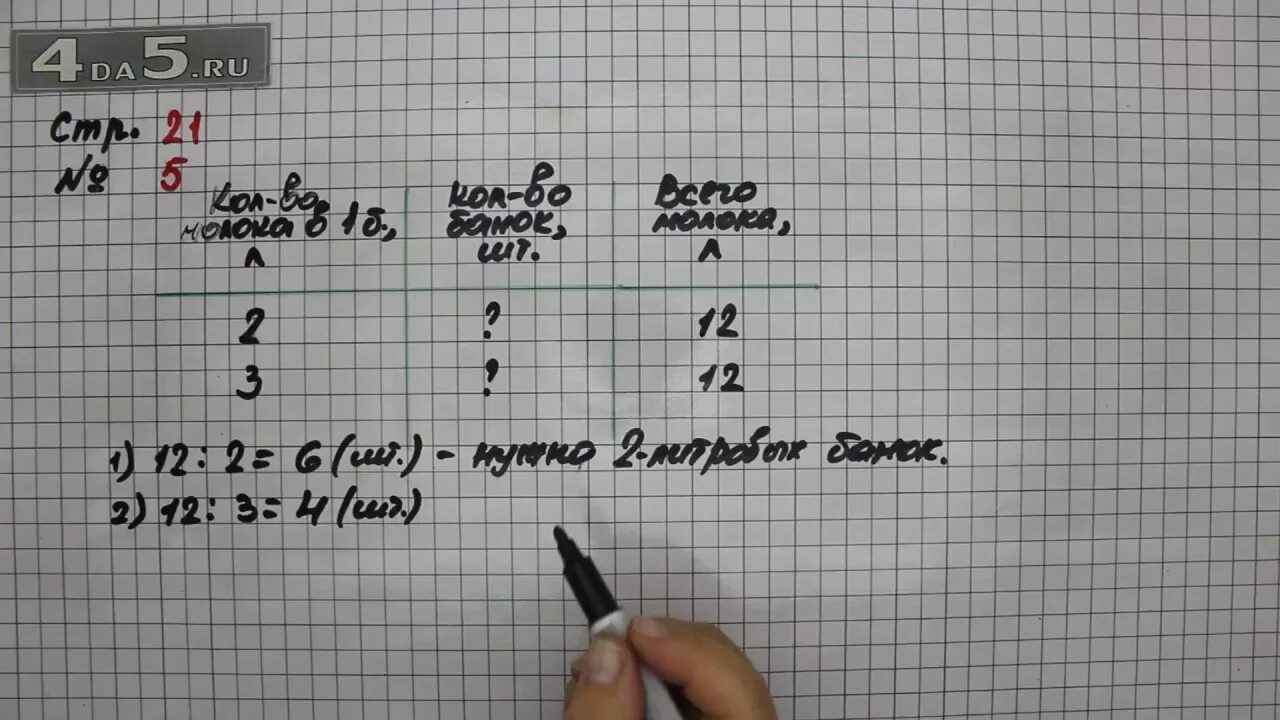 4DA5.RU
Стр. 21
№ 5
Кол-во молока в 1 б., л
Кол-во банок, шт.
Всего молока, л
2 ? 12
3 ? 12
1) 12 : 2 = 6 (шт.) - нужно 2-литровых банок.
2) 12 : 3 = 4 (шт.)